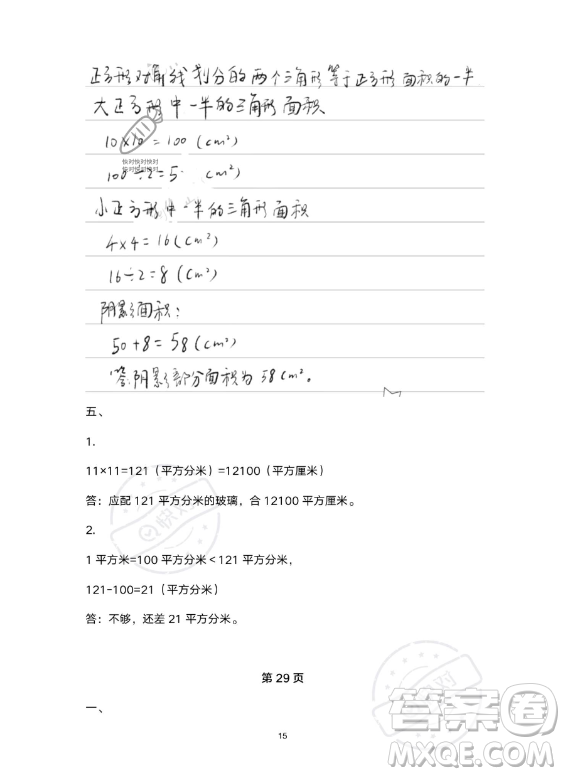 正方形对角线划分的两个三角形等于正方形面积的一半
大正方形中一半的三角形面积
10×10=100(cm²)
快对快对快对
快对快对快对
100÷2=5
小正方形中一半的三角形面积
4×4=16(cm²)
16÷2=8(cm²)
阴影面积:
50+8=58(cm²)
答:阴影部分面积为58cm²。
五、
1.
11×11=121(平方分米)=12100(平方厘米)
答:应配 121 平方分米的玻璃,合 12100 平方厘米。
2.
1 平方米=100 平方分米<121 平方分米,
121-100=21(平方分米)
答:不够,还差 21 平方分米。
第 29 页
一、
15
答案圈
MXQE.COM